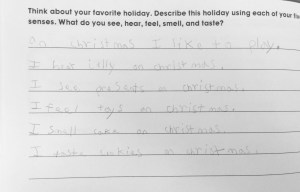 Think about your favorite holiday. Describe this holiday using each of your
senses. What do you see, hear, feel, smell, and taste?
On christmas I like to play.
I hear on christmas.
I see presents on christmas.
I feel toys on christmas.
I Smell on christmas.
I taste cookies on christmas.